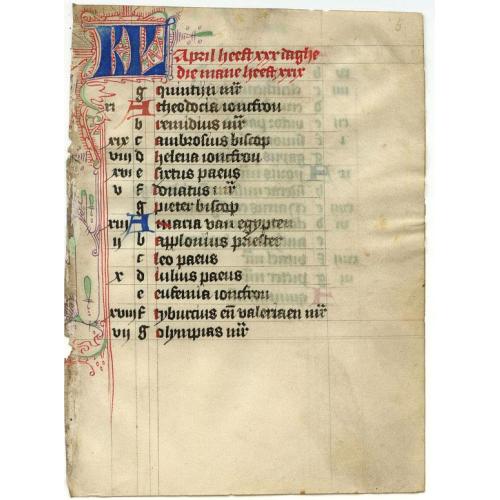 5
KL April heeft xxx daghe
die mane heeft xxix
g quintijn mr̄
xi A theodocia ioncfrou
b remidius mr̄
xix c ambrosius biscop
viii d helena ioncfrou
xvi e sixtus paeus
v f donatus mr̄
g pieter biscop
xiii A maria van egypten
ii b applonius priester
c leo paeus
x d iulius paeus
e eufemia ioncfrou
xviii f tyburcius eñ valeriaen mr̄
vii g olympias mr̄